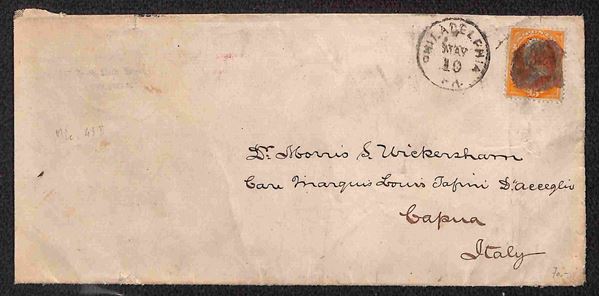 PHILADELPHIA
MAY
10
PA.
Dr. Morris S. Wickersham
Care Marquis Louis Tapini D'acceglio
Capua
Italy